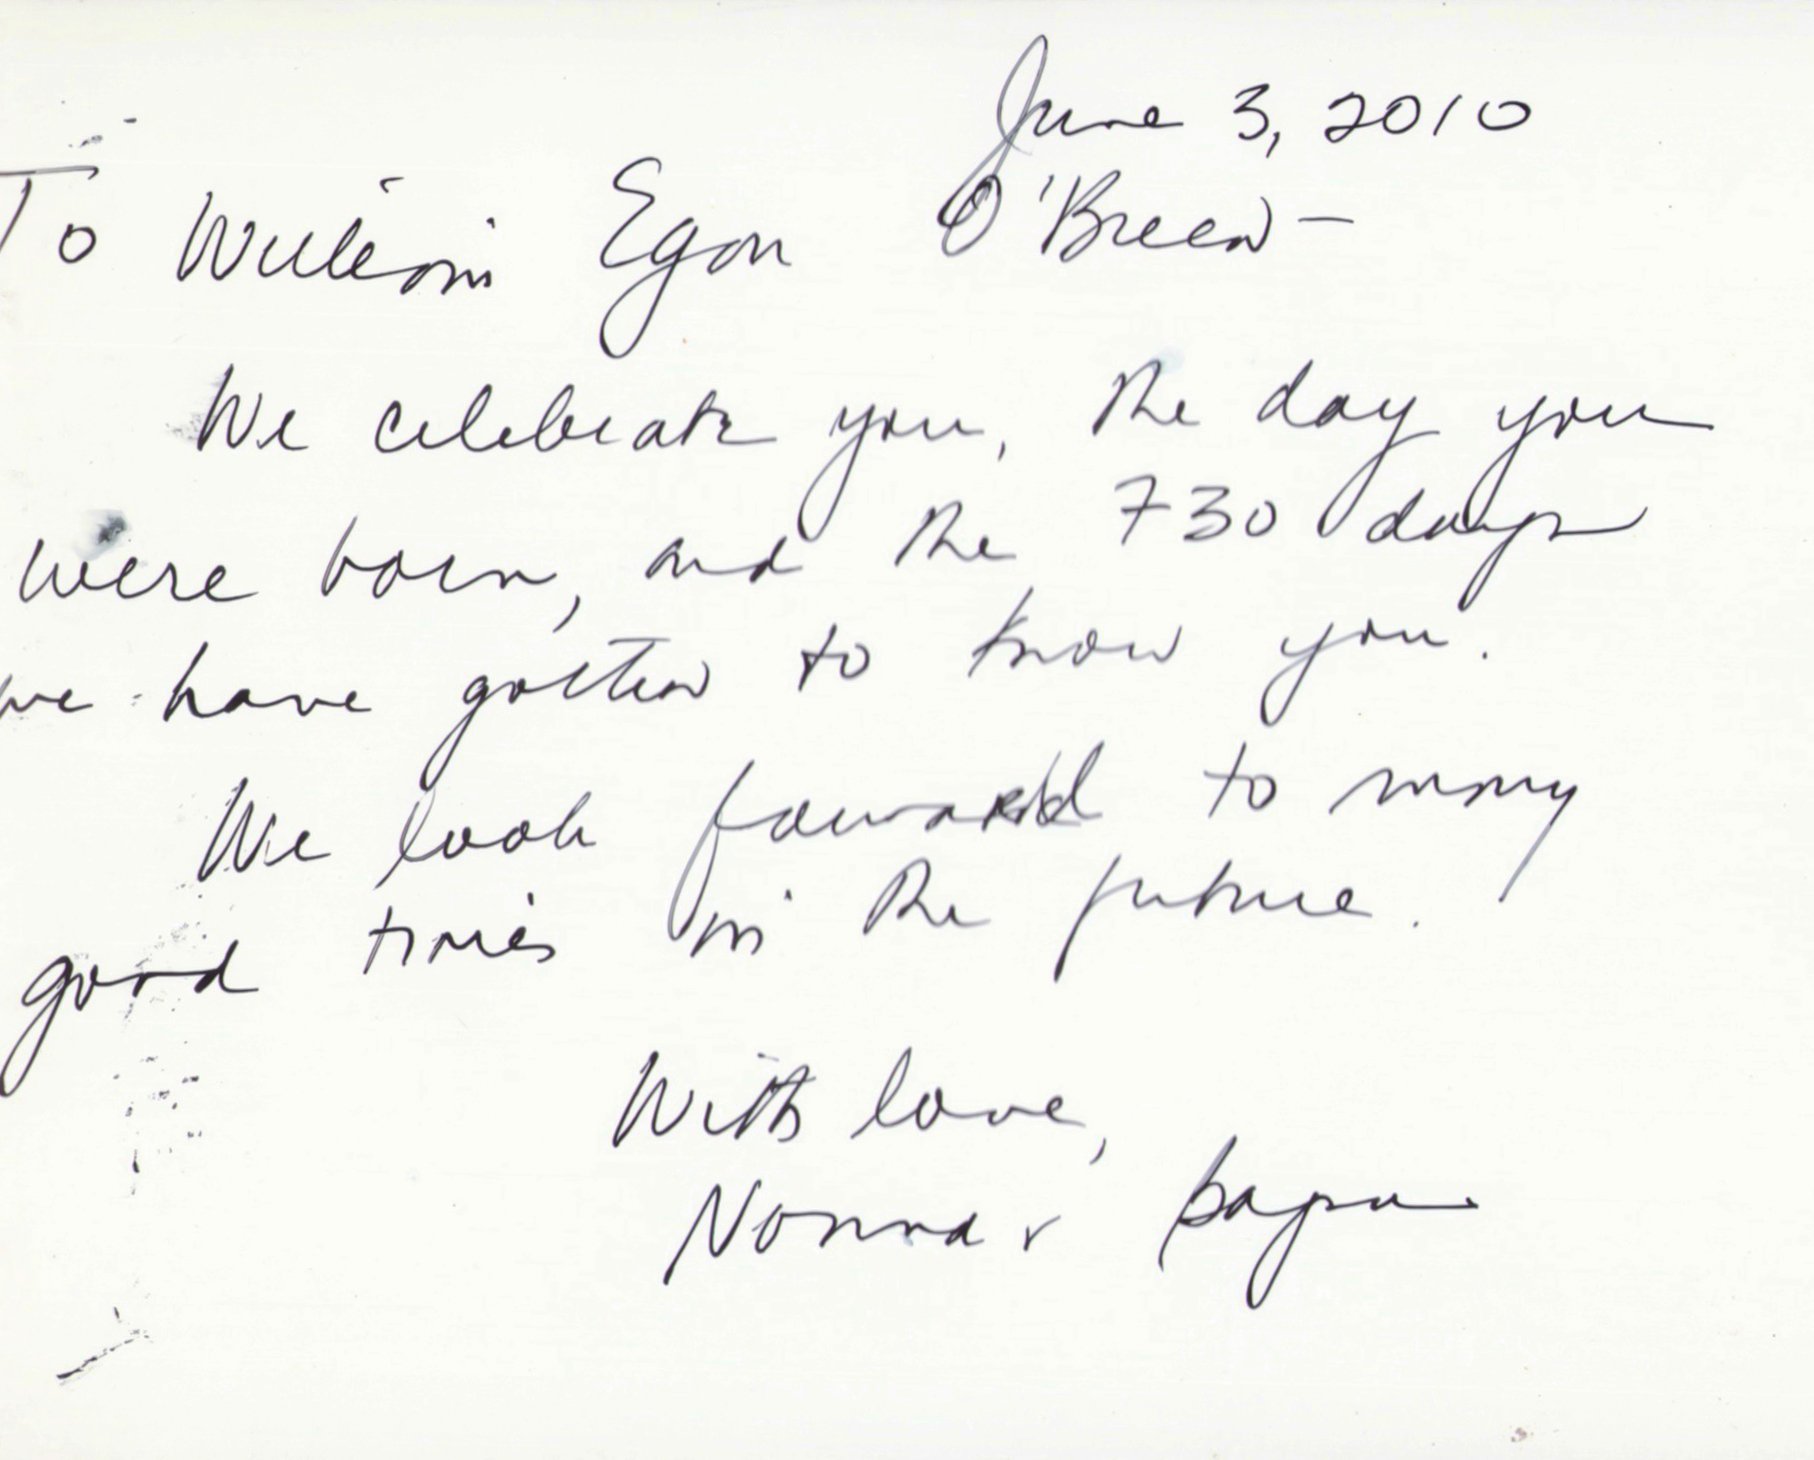 June 3, 2010
To William Egon O'Breen –
We celebrate you, the day you
were born, and the 730 days
we have gotten to know you.
We look foward to many
good times in the future.
With love,
Nonna & Papa